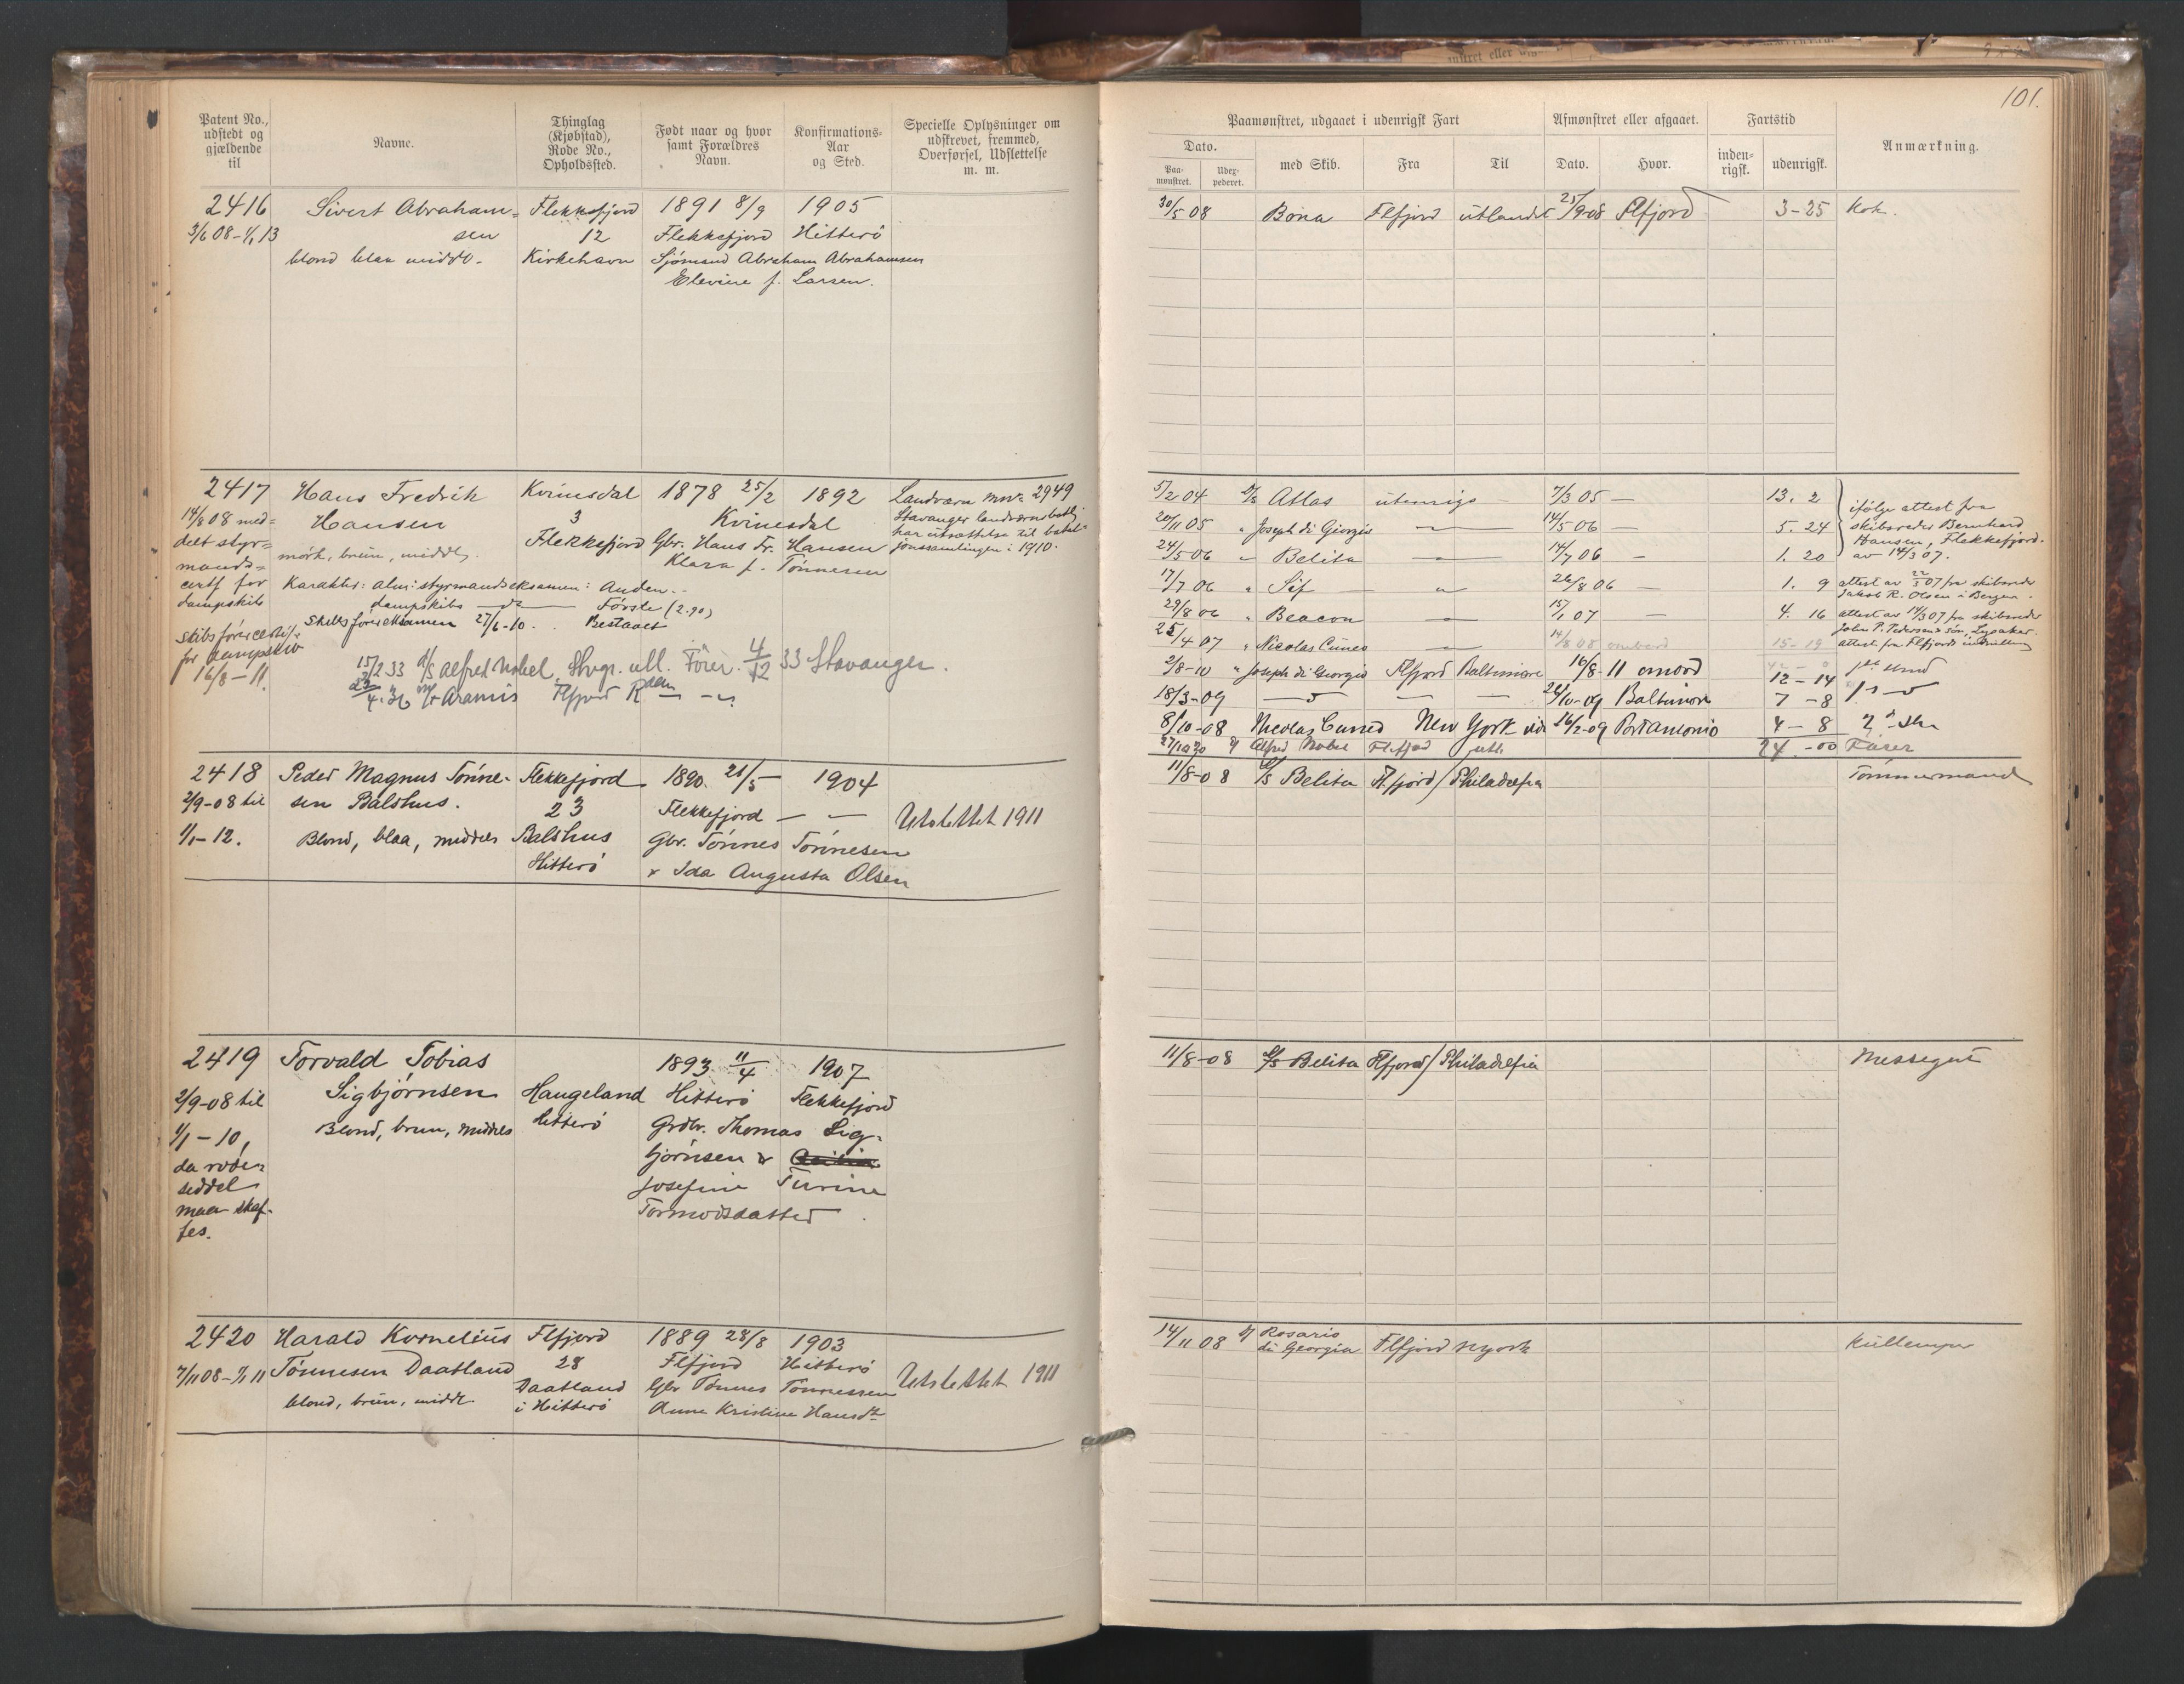 101.
Patent No., udstedt og gjældende til
Navne.
Thinglag (Kjøbstad), Rode No., Opholdssted.
Født naar og hvor samt Forældres Navn.
Konfirmations-Aar og Sted.
Specielle Oplysninger om udskrevet, fremmed, Overførsel, Udslettelse m. m.
Paamønstret, udgaaet i udenrigsk Fart
Afmønstret eller afgaaet.
Fartstid
Anmærkning.
Dato.
Paa-mønstret.
Udex-pederet.
med Skib.
Fra
Til
Dato.
Hvor.
inden-rigsk.
udenrigsk.
2416 Sivert Abraham- Flekkefjord 1891 8/9 1905
3/6 08 - 1/1 13 sen 12 Flekkefjord Hitterö
blond blaa midds. Kirkehavn Sjömand Abraham Abrahamsen
Elevine f. Larsen.
30/5 08 Bona Flfjord utlandet 25/9 08 Flfjord 3-25 Kok.
2417 Hans Fredrik Kvinesdal 1878 25/2 1892 Landværn mnr 2949
14/8 08 med- Hansen 3 Kvinesdal Stavanger landværnsbatlj
delt styr- mörk, brun, middls. Flekkefjord Gbr. Hans Fr. Hansen har utsættelse til batal-
mands- Klara f. Tönnesen jonssamlingen i 1910.
certf for Karakter: alm: styrmandseksamen: Anden.
dampskib dampskibs — Förste (2.90)
skibsförereksamen 27/6-10. Bestaaet
skibsförercertif.
for dampskib
16/8-11.
15/2 33 D/S Alfred Nobel, Stvgr. utl. Förer. 4/12 33 Stavanger.
23/4. 36 M/T Aramis Flfjord
5/2 04 D/S Atlas utenrigs 7/3 05 — 13. 2
20/11 05 " Joseph di Giorgio — 14/5 06 — 5. 24
24/5-06 " Belita — 14/7 06 — 1. 20
ifölge attest fra
skibsreder Bernhard
Hansen, Flekkefjord.
av 14/3 07.
17/7 06 " Sif — 26/8 06 — 1. 9 attest av 22/3 07 fra skibsreder
Jakob R. Olsen i Bergen.
29/8 06 " Beacon — 15/1 07 — 4. 16 attest av 14/3 07 fra skibsreder
John P. Pedersen & sön, Lysaker.
25/4 07 " Nicolas Cuneo 14/8 08 ombord 15-19 attest fra Flfjords
2/8-10 " Joseph di Giorgio Flfjord Baltimore 16/8-11 omord 12-14 1ste stmd
18/3-09 — — — 26/10-09 Baltimore 7-8
8/10-08 Nicolas Cuneo New York 16/2-09 Port Antonio 4-8 2d
27/10 20 D/S Alfred Nobel Flefjord utl. 24-00 Förer
2418 Peder Magnus Tönne- Flekkefjord 1890. 21/5 1904
2/9-08 til sen Balshus. 23 Flekkefjord — —
1/1-12. Blond, blaa, middels Balshus Gbr. Tönnes Tönnesen Utslettet 1911
Hitterö & Ida Augusta Olsen
11/8-08 D/S Belita Flfjord/Philadelfia Tömmermand
2419 Torvald Tobias 1893 11/4 1907
2/9-08 til Sigbjörnsen Haugeland Hitterö Flekkefjord
1/1-10, Blond, brun, middels Hitterö Grdbr. Thomas Sig-
da rode- björnsen &
seddel Josefine Turine
maa skaf- Tormodsdatter
fes.
11/8-08 D/S Belita Flfjord/Philadelfia Messegut
2420 Harald Kornelius Flfjord 1889 28/8 1903
7/11 08 - 1/1 11 Tönnesen Daatland 28 Flfjord Hitterö
blond, brun, midds. Daatland Gbr Tönnes Tönnessen Utslettet 1911
i Hitterö Anne Kristine Hansdt
14/11 08 D/S Rosario
di Georgio Flfjord Nyork Kullemper